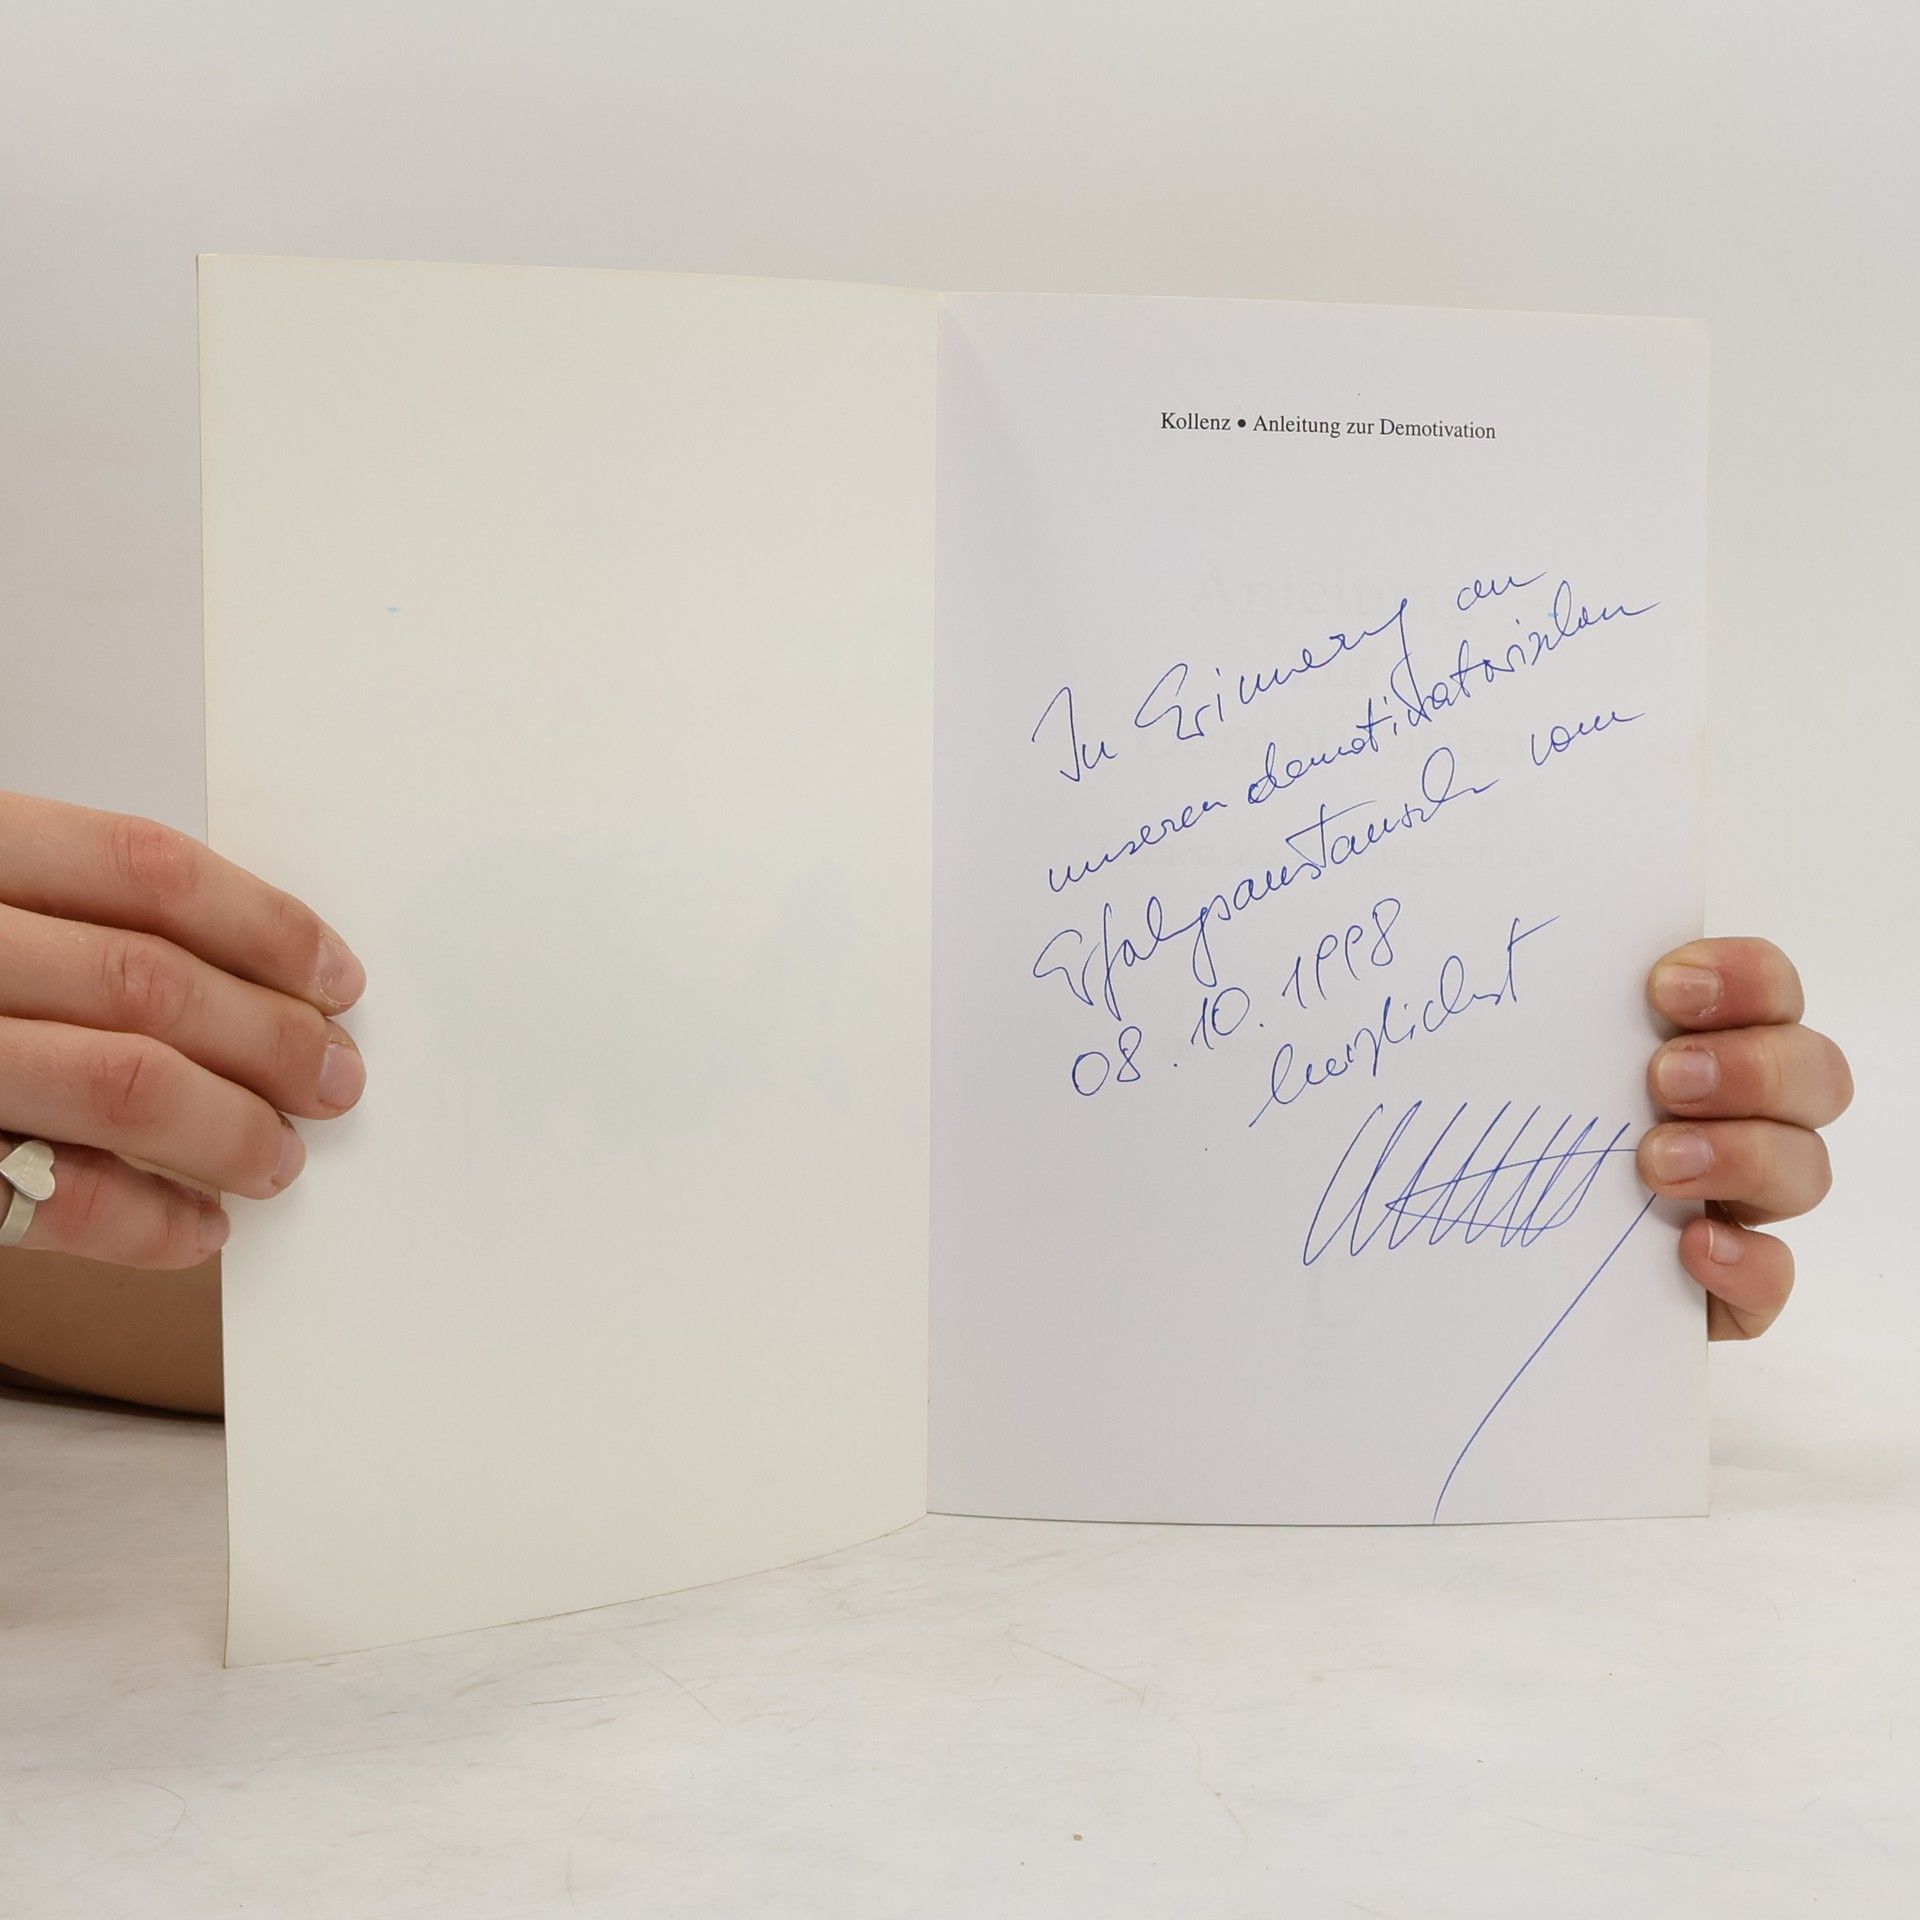 Kollenz • Anleitung zur Demotivation
In Erinnerung an
unseren demotivatorischen
Erfahrungsaustausch vom
08.10.1998
herzlichst